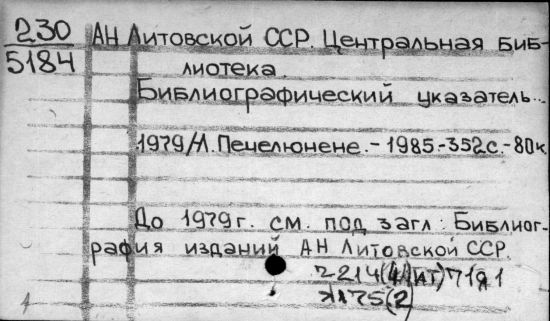 230
5184
АН Литовской ССР. Центральная биб-
лиотека.
Библиографический указатель...
1979/Л. Печелюнене. - 1985. - 352с. - 80к.
До 1979г. см. под загл: Библиог-
рафия изданий АН Литовской ССР.
Z 214(4Лит)71я1
Я175(2)